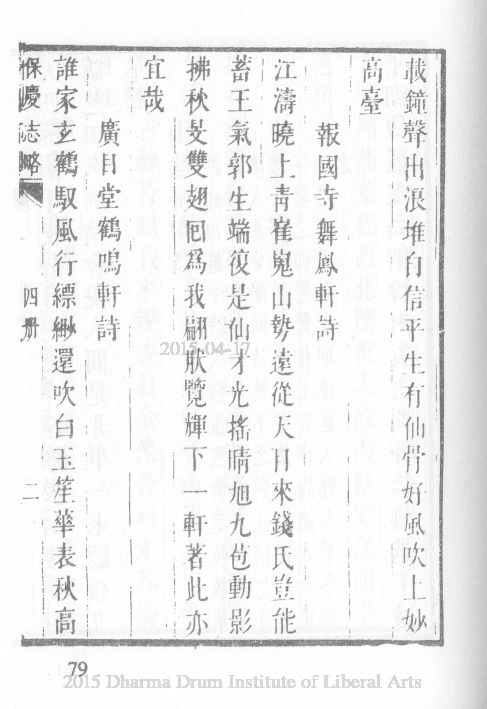 載鐘聲出浪堆自信平生有仙骨好風吹上妙
高臺
報國寺舞鳳軒詩
江濤曉上靑崔嵬山勢遠從天目來錢氏豈能
蓄王氣郭生端復是仙才光搖晴旭九苞動影
拂秋旻雙翅囘爲我翩然覽輝下一軒著此亦
宜哉
廣目堂鶴鳴軒詩
誰家玄鶴馭風行縹緲還吹白玉笙華表秋高
保慶志略
四册
二
2015-04-17
79
2015 Dharma Drum Institute of Liberal Arts